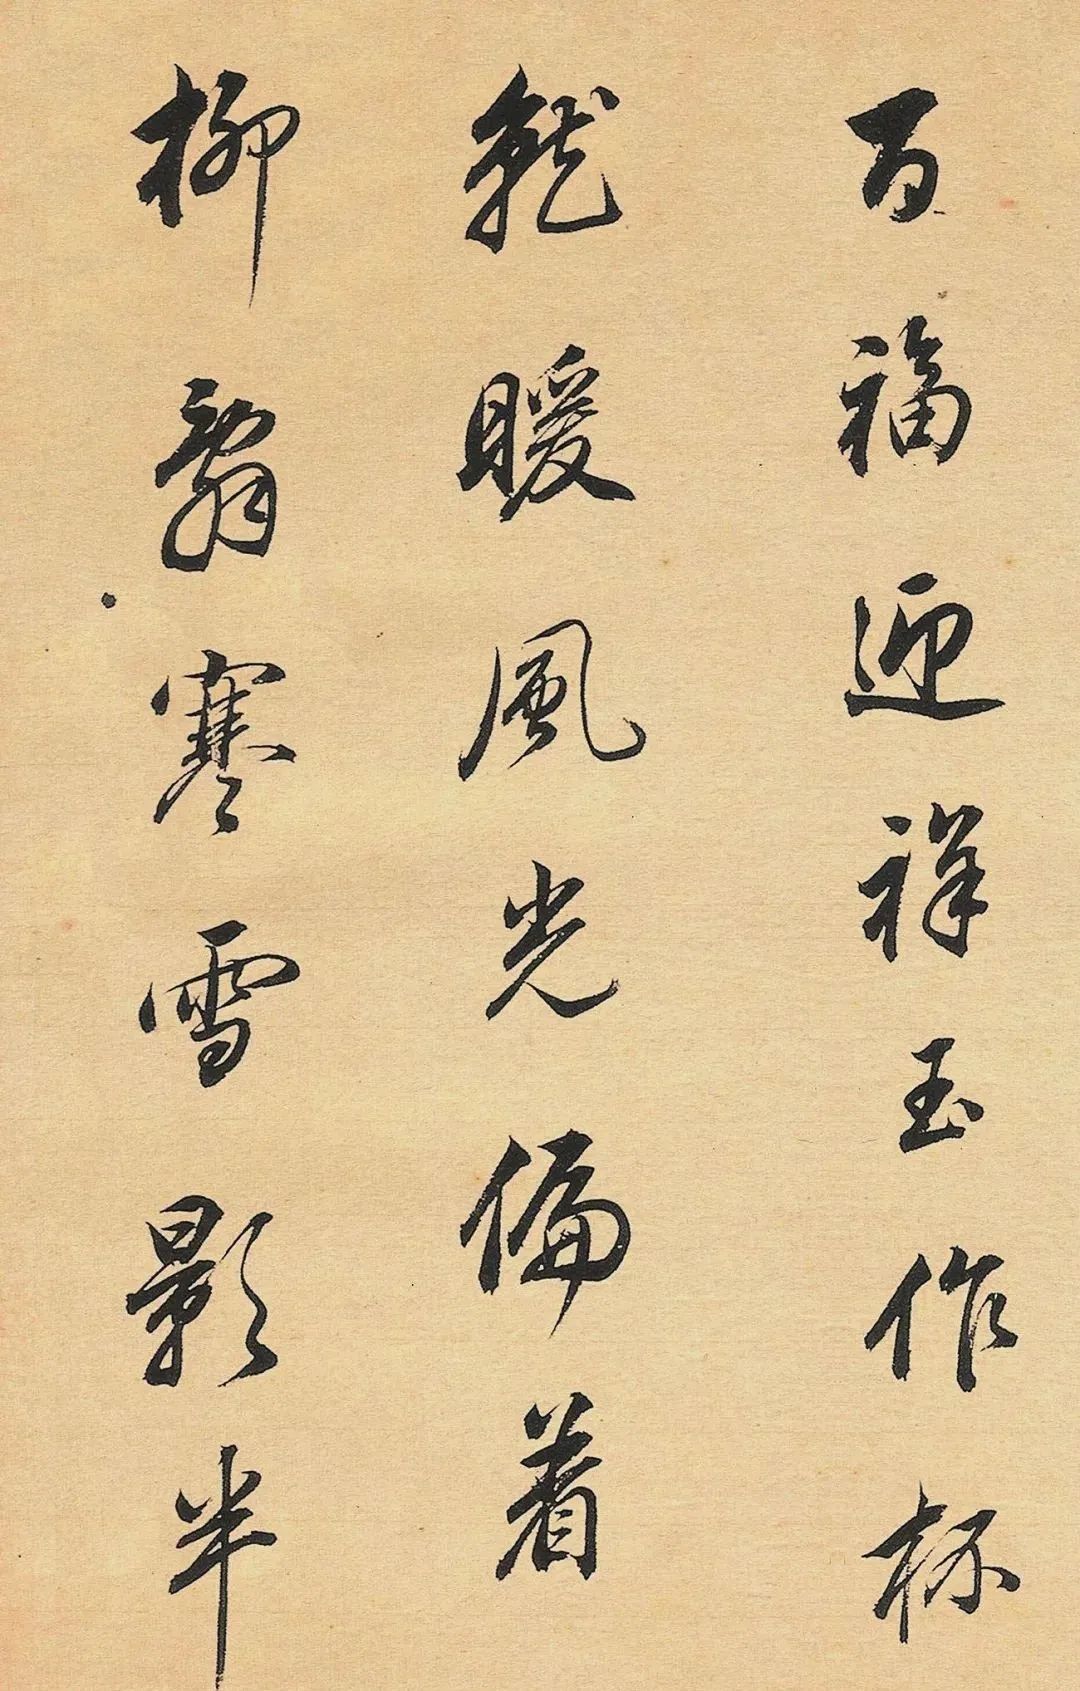 百福迎祥玉作杯
就暖風光偏着
柳辭寒雪影半